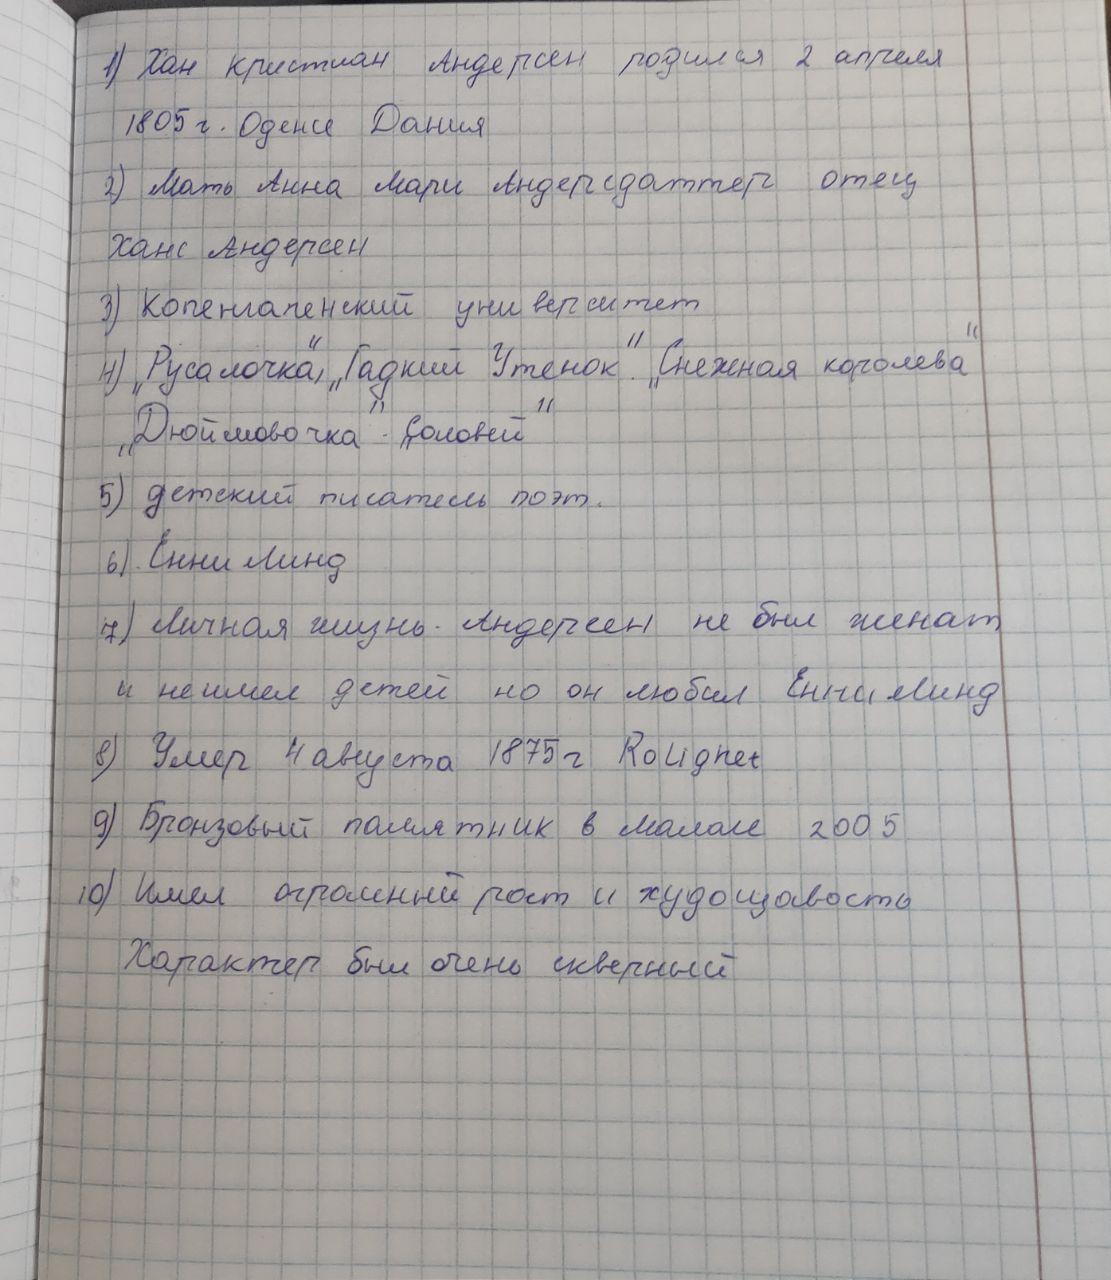 1) Хан кристиан Андерсен родился 2 апреля
1805г. Оденсе Дания
2) Мать Анна Мари Андерсдаттер отец
Ханс Андерсен
3) Копенгагенский университет
4) „Русалочка", „Гадкий Утенок". „Снежная королева"
„Дюймовочка". Соловей"
5) детский писатель поэт.
6). Енни Линд
7) Личная жизнь. Андерсен не был женат
и неимел детей но он любил Енни Линд
8) Умер 4 августа 1875г Rolighet
9) Бронзовый памятник в Малаге 2005
10) Имел огромный рост и худощавость
Характер был очень скверный